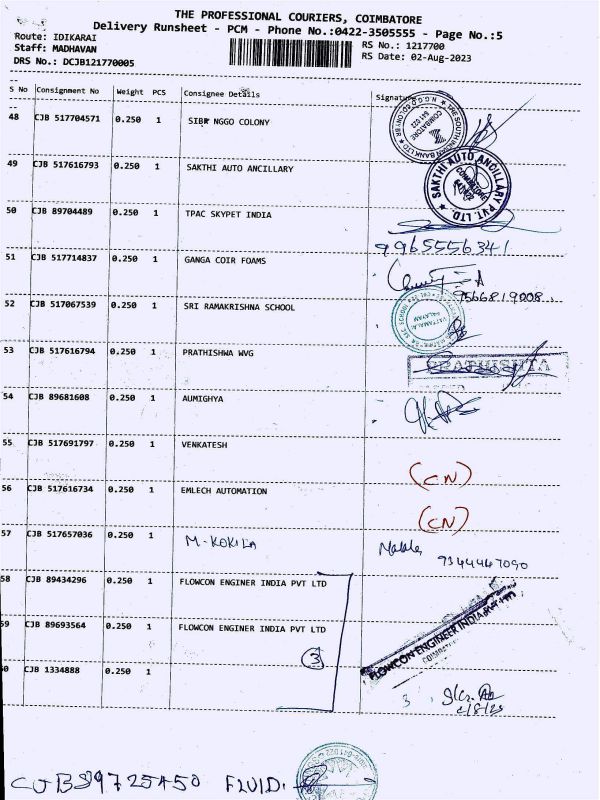 THE PROFESSIONAL COURIERS, COIMBATORE
Delivery Runsheet - PCM - Phone No.:0422-3505555 - Page No.:5
Route: IDIKARAI RS No.: 1217700
Staff: MADHAVAN RS Date: 02-Aug-2023
DRS No.: DCJB121770005
S No Consignment No Weight PCS Consignee Details Signature
48 CJB 517704571 0.250 1 SIBR NGGO COLONY
THE SOUTH INDIAN BANK LTD
COIMBATORE
641 022
49 CJB 517616793 0.250 1 SAKTHI AUTO ANCILLARY
SAKTHI AUTO ANCILLARY PVT. LTD.
50 CJB 89704489 0.250 1 TPAC SKYPET INDIA
9965556341
51 CJB 517714837 0.250 1 GANGA COIR FOAMS
9566819008
52 CJB 517067539 0.250 1 SRI RAMAKRISHNA SCHOOL
53 CJB 517616794 0.250 1 PRATHISHWA WVG
54 CJB 89681608 0.250 1 AUMIGHYA
55 CJB 517691797 0.250 1 VENKATESH
(CN)
56 CJB 517616734 0.250 1 EMLECH AUTOMATION
(CN)
57 CJB 517657036 0.250 1 M-KOKILA
9344447090
58 CJB 89434296 0.250 1 FLOWCON ENGINER INDIA PVT LTD
59 CJB 89693564 0.250 1 FLOWCON ENGINER INDIA PVT LTD
3
FLOWCON ENGINEER INDIA
60 CJB 1334888 0.250 1
3
2/8/23
CJB89725450 FLUID